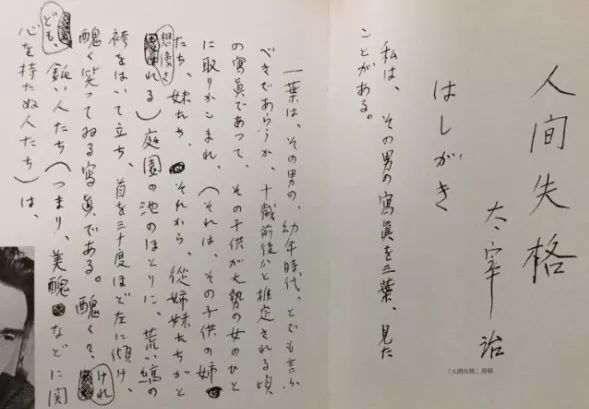 人间失格
太宰治
はしがき
私は、その男の寫眞を三葉、見た
ことがある。
一葉は、その男の、幼年時代、とでも言ふ
べきであらうか、十歳前後かと推定される頃
の寫眞であつて、その子供が大勢の女のひと
に取りかこまれ、(それは、その子供の姉
たち、妹たち、それから、従姉妹たちかと
想像される)庭園の池のほとりに、荒い縞の
袴をはいて立ち、首を三十度ほど左に傾け、
醜く笑つてゐる寫眞である。醜く?けれ
ども、鈍い人たち(つまり、美醜などに関
心を持たぬ人たち)は、
「人間失格」原稿